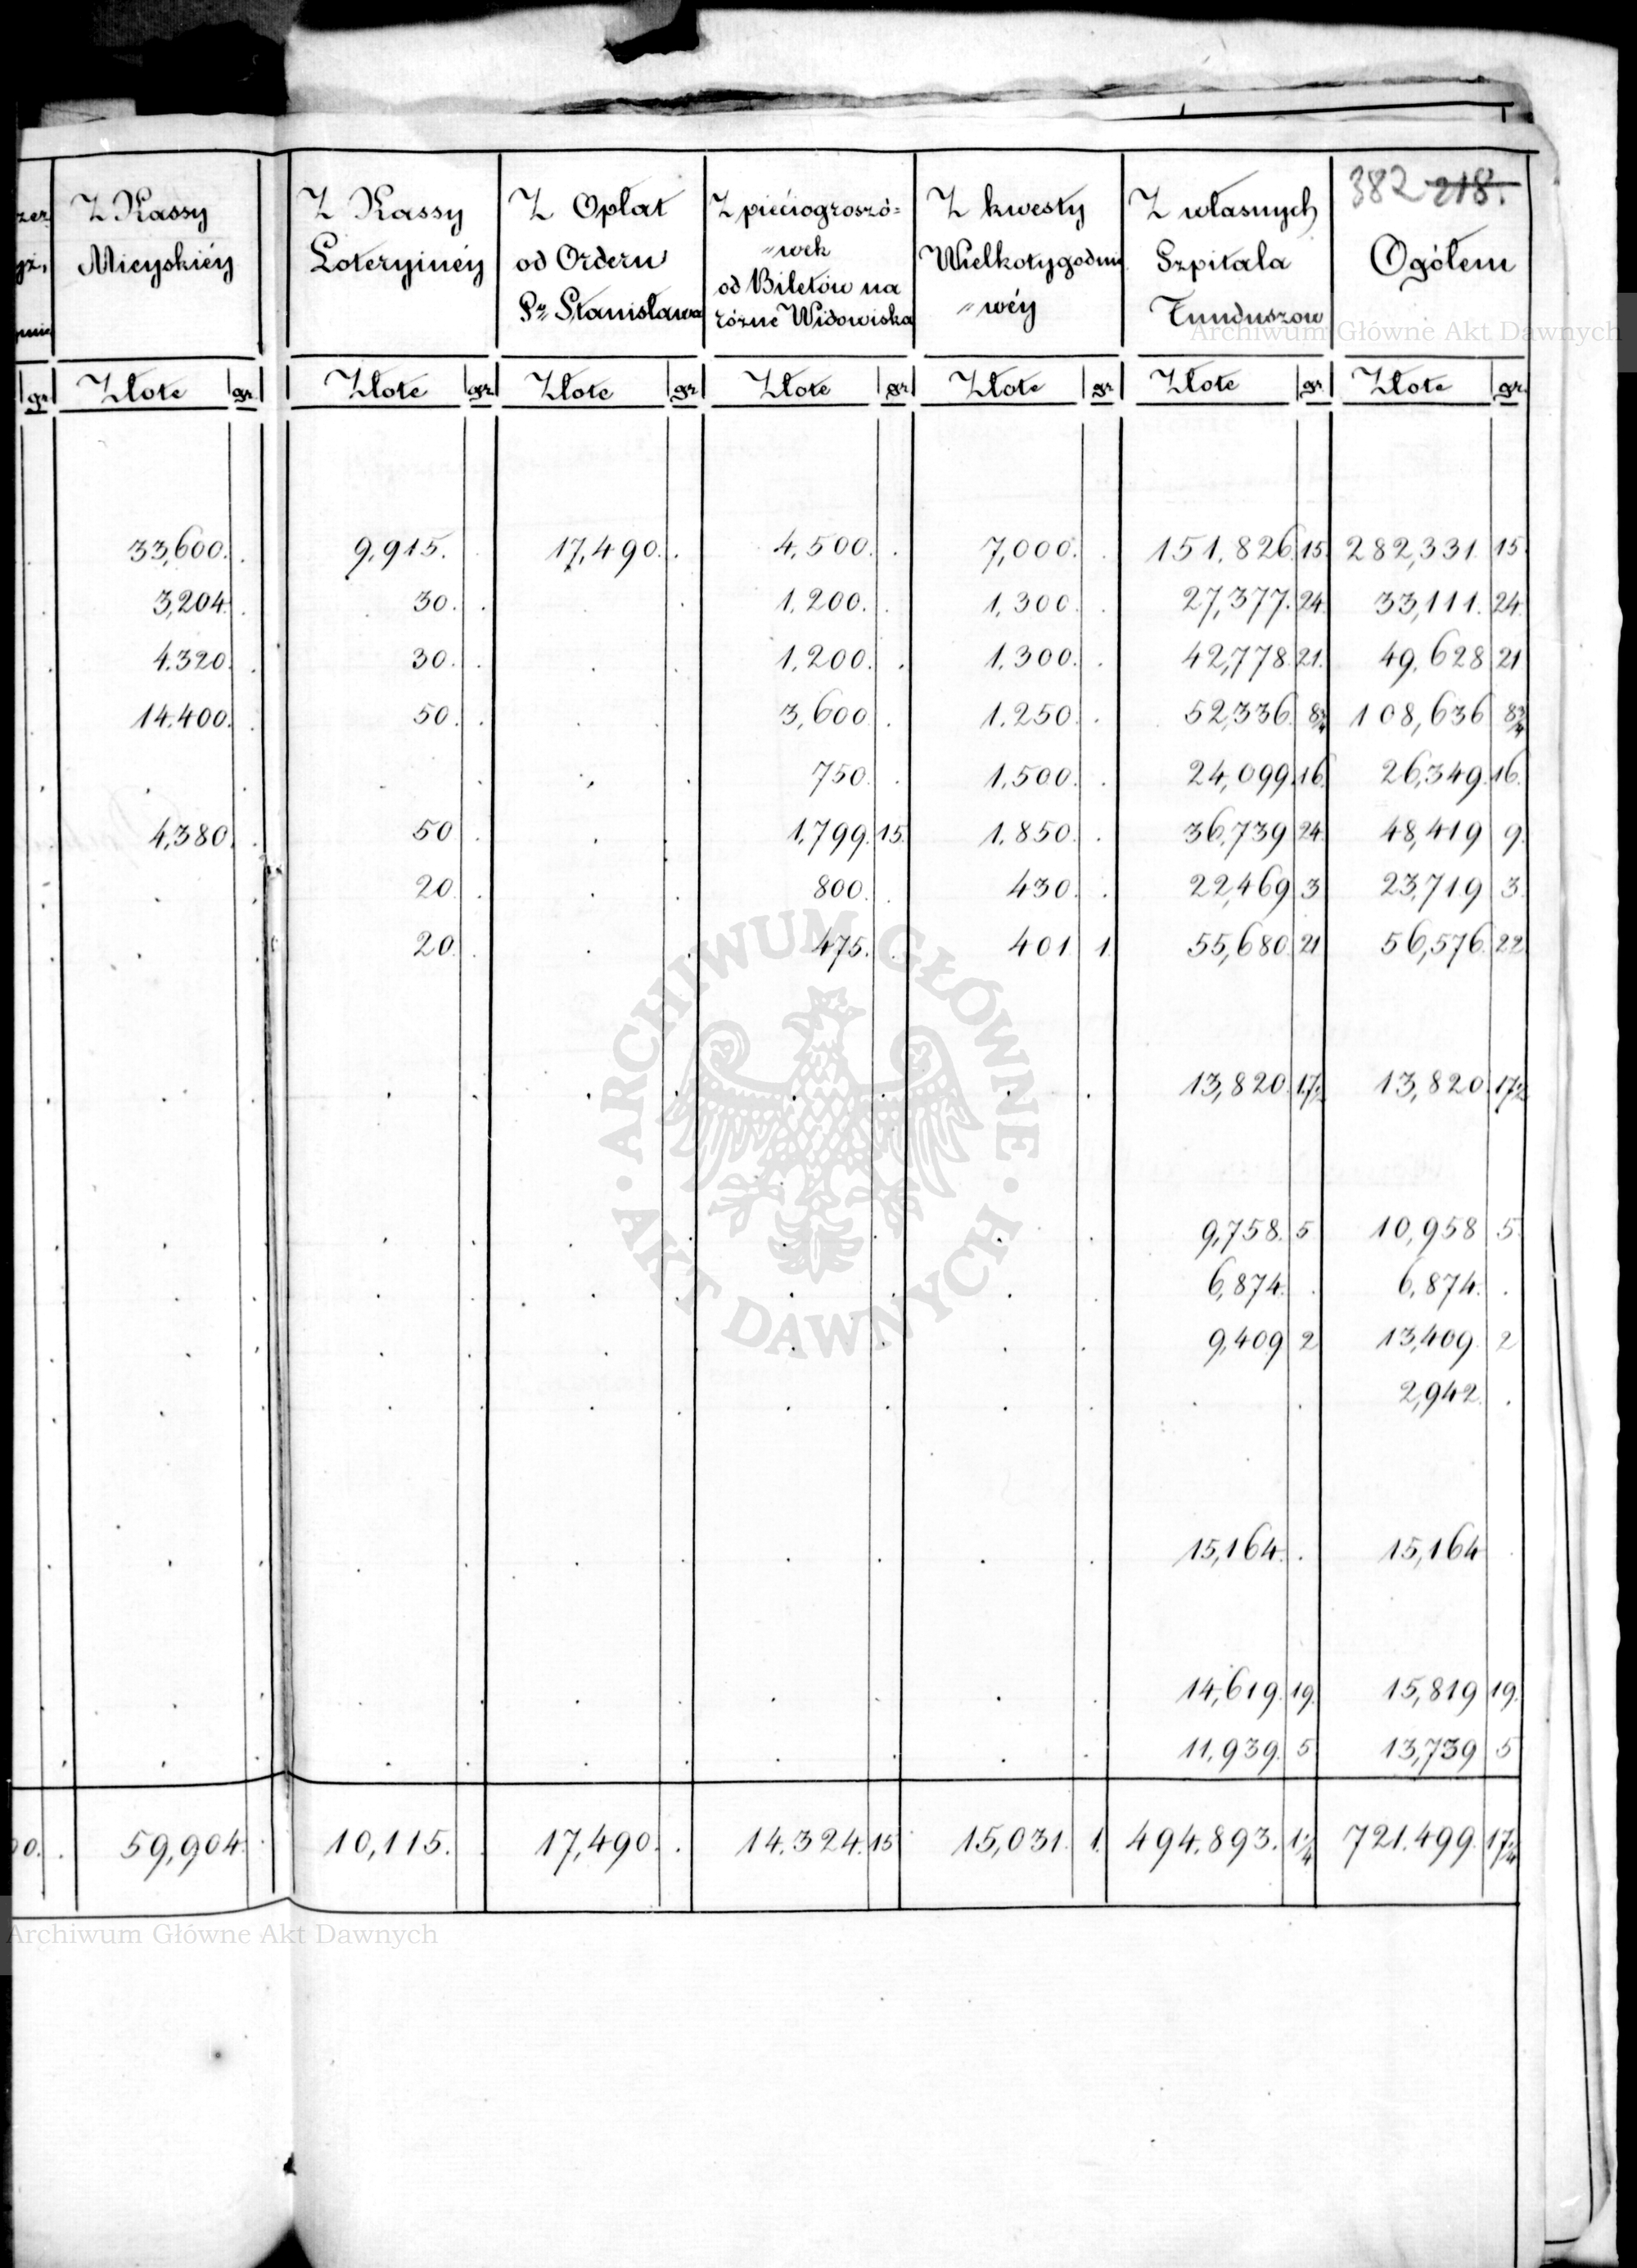 382 218.
Z Kassy Z Kassy Z Opłat Z pięciogroszó= Z kwesty Z własnych Ogółem
Mieyskiéy Loteryinéy od Orderu "wek Wielkotygodnio Szpitala
Sgo Stanisława od Biletów na "wéy Funduszow
różne Widowiska
gr Złote gr Złote gr Złote gr Złote gr Złote gr Złote gr Złote gr
33,600. . 9,915. . 17,490. . 4,500. . 7,000. . 151,826. 15 282,331. 15.
3,204. . 30. . . . 1,200. . 1,300. . 27,377. 24. 33,111. 24.
4.320. . 30. . . . 1,200. . 1,300. . 42,778. 21. 49,628 21
14.400. . 50. . . . 3,600. . 1.250. . 52,336. 8 3/4 108,636 8 3/4
. . . . . . 750. . 1,500. . 24,099. 16. 26,349. 16.
4,380. . 50 . . . 1,799. 15. 1.850. . 36,739 24. 48,419 9.
. . 20 . . . 800. . 430. . 22,469 3 23,719 3.
. . 20. . . . 475. . 401 1. 55,680. 21 56,576. 22
. . . . . . . . . . 13,820. 17 1/2 13,820. 17 1/2
. . . . . . . . . . 9,758. 5 10,958 5.
. . . . . . . . . . 6,874. . 6,874. .
. . . . . . . . . . 9,409 2 13,409. 2
. . . . . . . . . . . . 2,942. .
. . . . . . . . . . 15,164. . 15,164 .
. . . . . . . . . . 14,619. 19. 15,819 19.
. . . . . . . . . . 11,939. 5 13,739 5
59,904. . 10,115. . 17,490. . 14.324. 15 15,031. 1. 494.893. 1 1/4 721.499. 17 1/4
Archiwum Główne Akt Dawnych
ARCHIWUM GŁÓWNE AKT DAWNYCH
Archiwum Główne Akt Dawnych